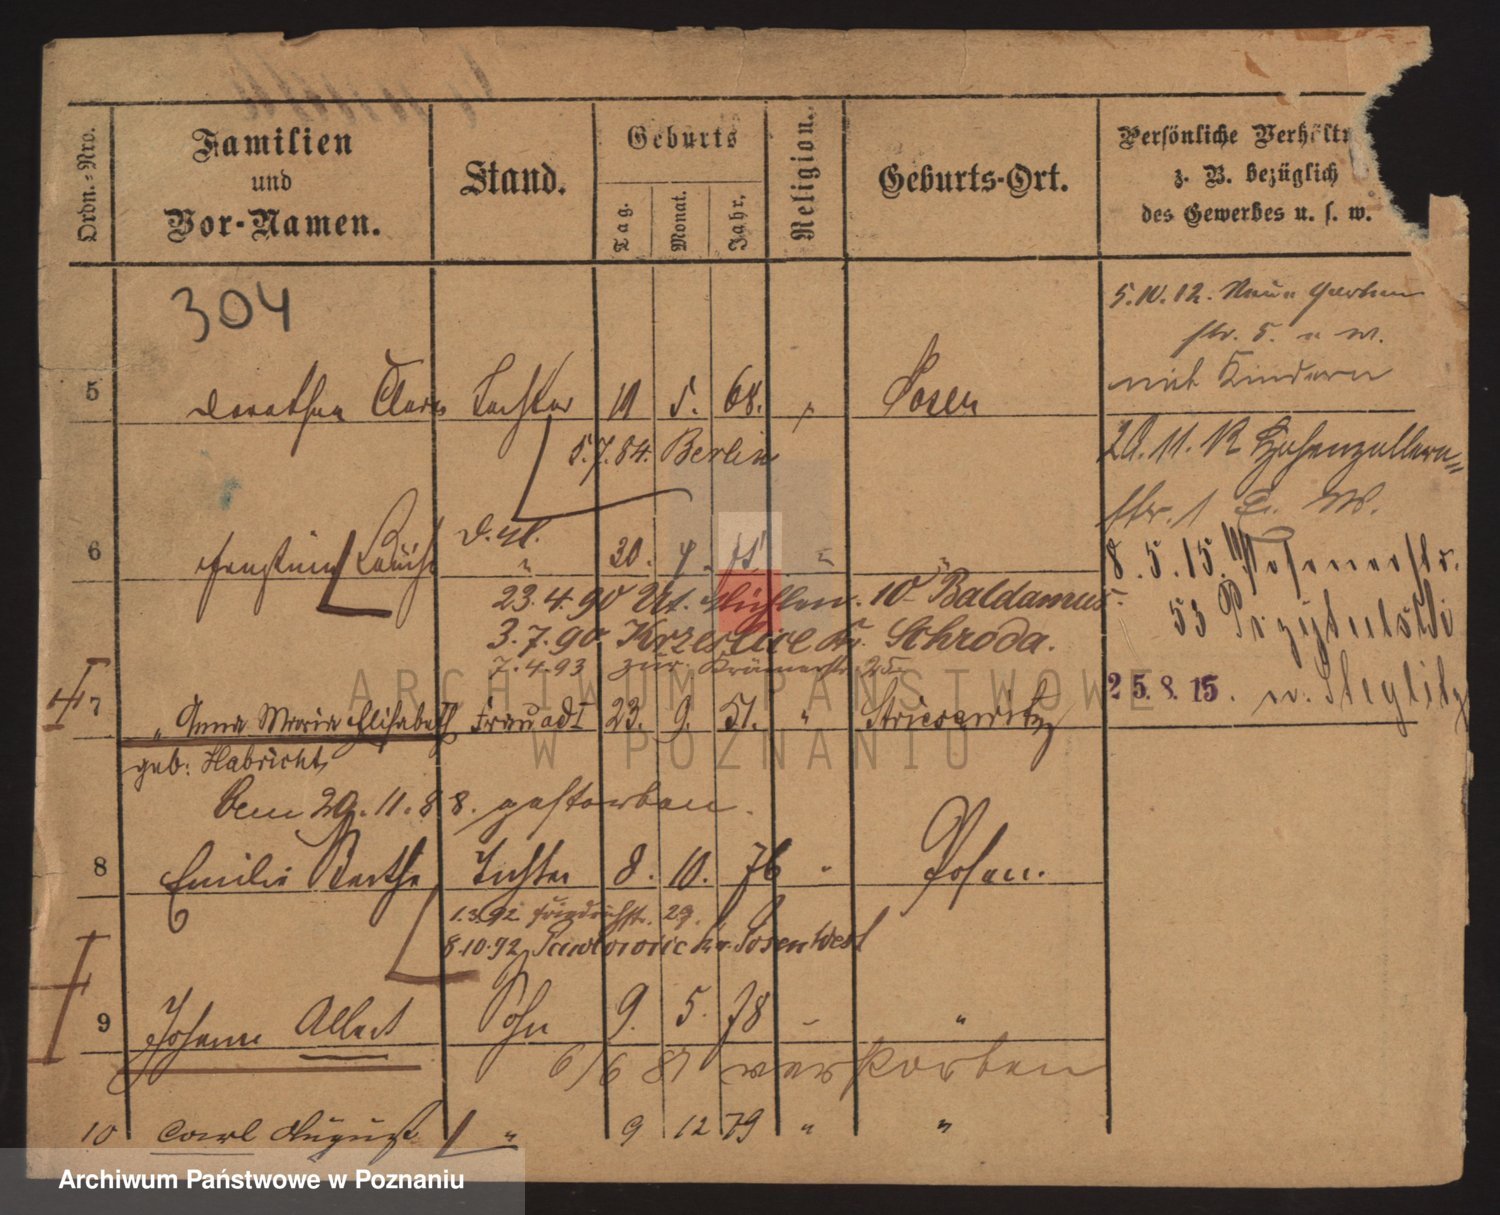 Ordn.-Nro.
Familien
und
Vor-Namen.
Stand.
Geburts
Tag.
Monat.
Jahr.
Religion.
Geburts-Ort.
Persönliche Verhält
z. B. bezüglich
des Gewerbes u. s. w.
304
5.10.12. Neue Garten
str. 5.
mit Kindern
5 Dorothea Clara Tochter 11 5. 68. Posen
5.7.84. Berlin
20.11.12 Hohenzollern=
str. 1
6 30.
8.5.15. Posenerstr.
53
23.4.90 Ut. Mühlen. 10 Baldamus.
3.7.90 Krzeslice Kr. Schroda.
7.4.93 zur. Krämerstr. 25.
25.8.15. n. Steglitz
7 " Anna Maria Elisabeth Frau ad 1 23. 9. 51. " Striesewitz
geb: Habricht
Dem 29.11.88. gestorben.
8 Emilie Bertha Tochter 8. 10. 76 " Posen.
1.3.92. Friedrichstr. 29.
8.10.92 Kr. Posen West
9 Johann Albert Sohn 9. 5. 78 "
6/6 87 verstorben
10 Carl August " 9 12 79 " "
ARCHIWUM PAŃSTWOWE
W POZNANIU
Archiwum Państwowe w Poznaniu